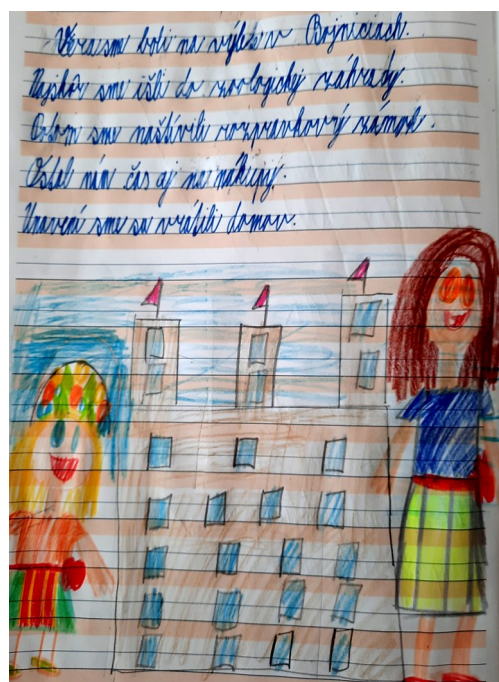 Včera sme boli na výlete v Bojniciach.
Najskôr sme išli do zoologickej záhrady.
Potom sme navštívili rozprávkový zámok.
Ostal nám čas aj na nákupy.
Unavení sme sa vrátili domov.